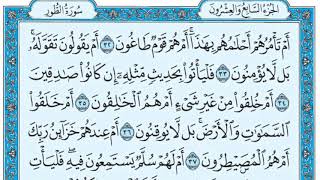 الجزء السابع والعشرون
سورة الطور
أَمْ تَأْمُرُهُمْ أَحْلَٰمُهُم بِهَٰذَآ أَمْ هُمْ قَوْمٌ طَاغُونَ ٣٢ أَمْ يَقُولُونَ تَقَوَّلَهُۥ
بَل لَّا يُؤْمِنُونَ ٣٣ فَلْيَأْتُوا۟ بِحَدِيثٍ مِّثْلِهِۦٓ إِن كَانُوا۟ صَٰدِقِينَ
٣٤ أَمْ خُلِقُوا۟ مِنْ غَيْرِ شَىْءٍ أَمْ هُمُ ٱلْخَٰلِقُونَ ٣٥ أَمْ خَلَقُوا۟
ٱلسَّمَٰوَٰتِ وَٱلْأَرْضَ بَل لَّا يُوقِنُونَ ٣٦ أَمْ عِندَهُمْ خَزَآئِنُ رَبِّكَ
أَمْ هُمُ ٱلْمُصَۣيْطِرُونَ ٣٧ أَمْ لَهُمْ سُلَّمٌ يَسْتَمِعُونَ فِيهِ فَلْيَأْتِ